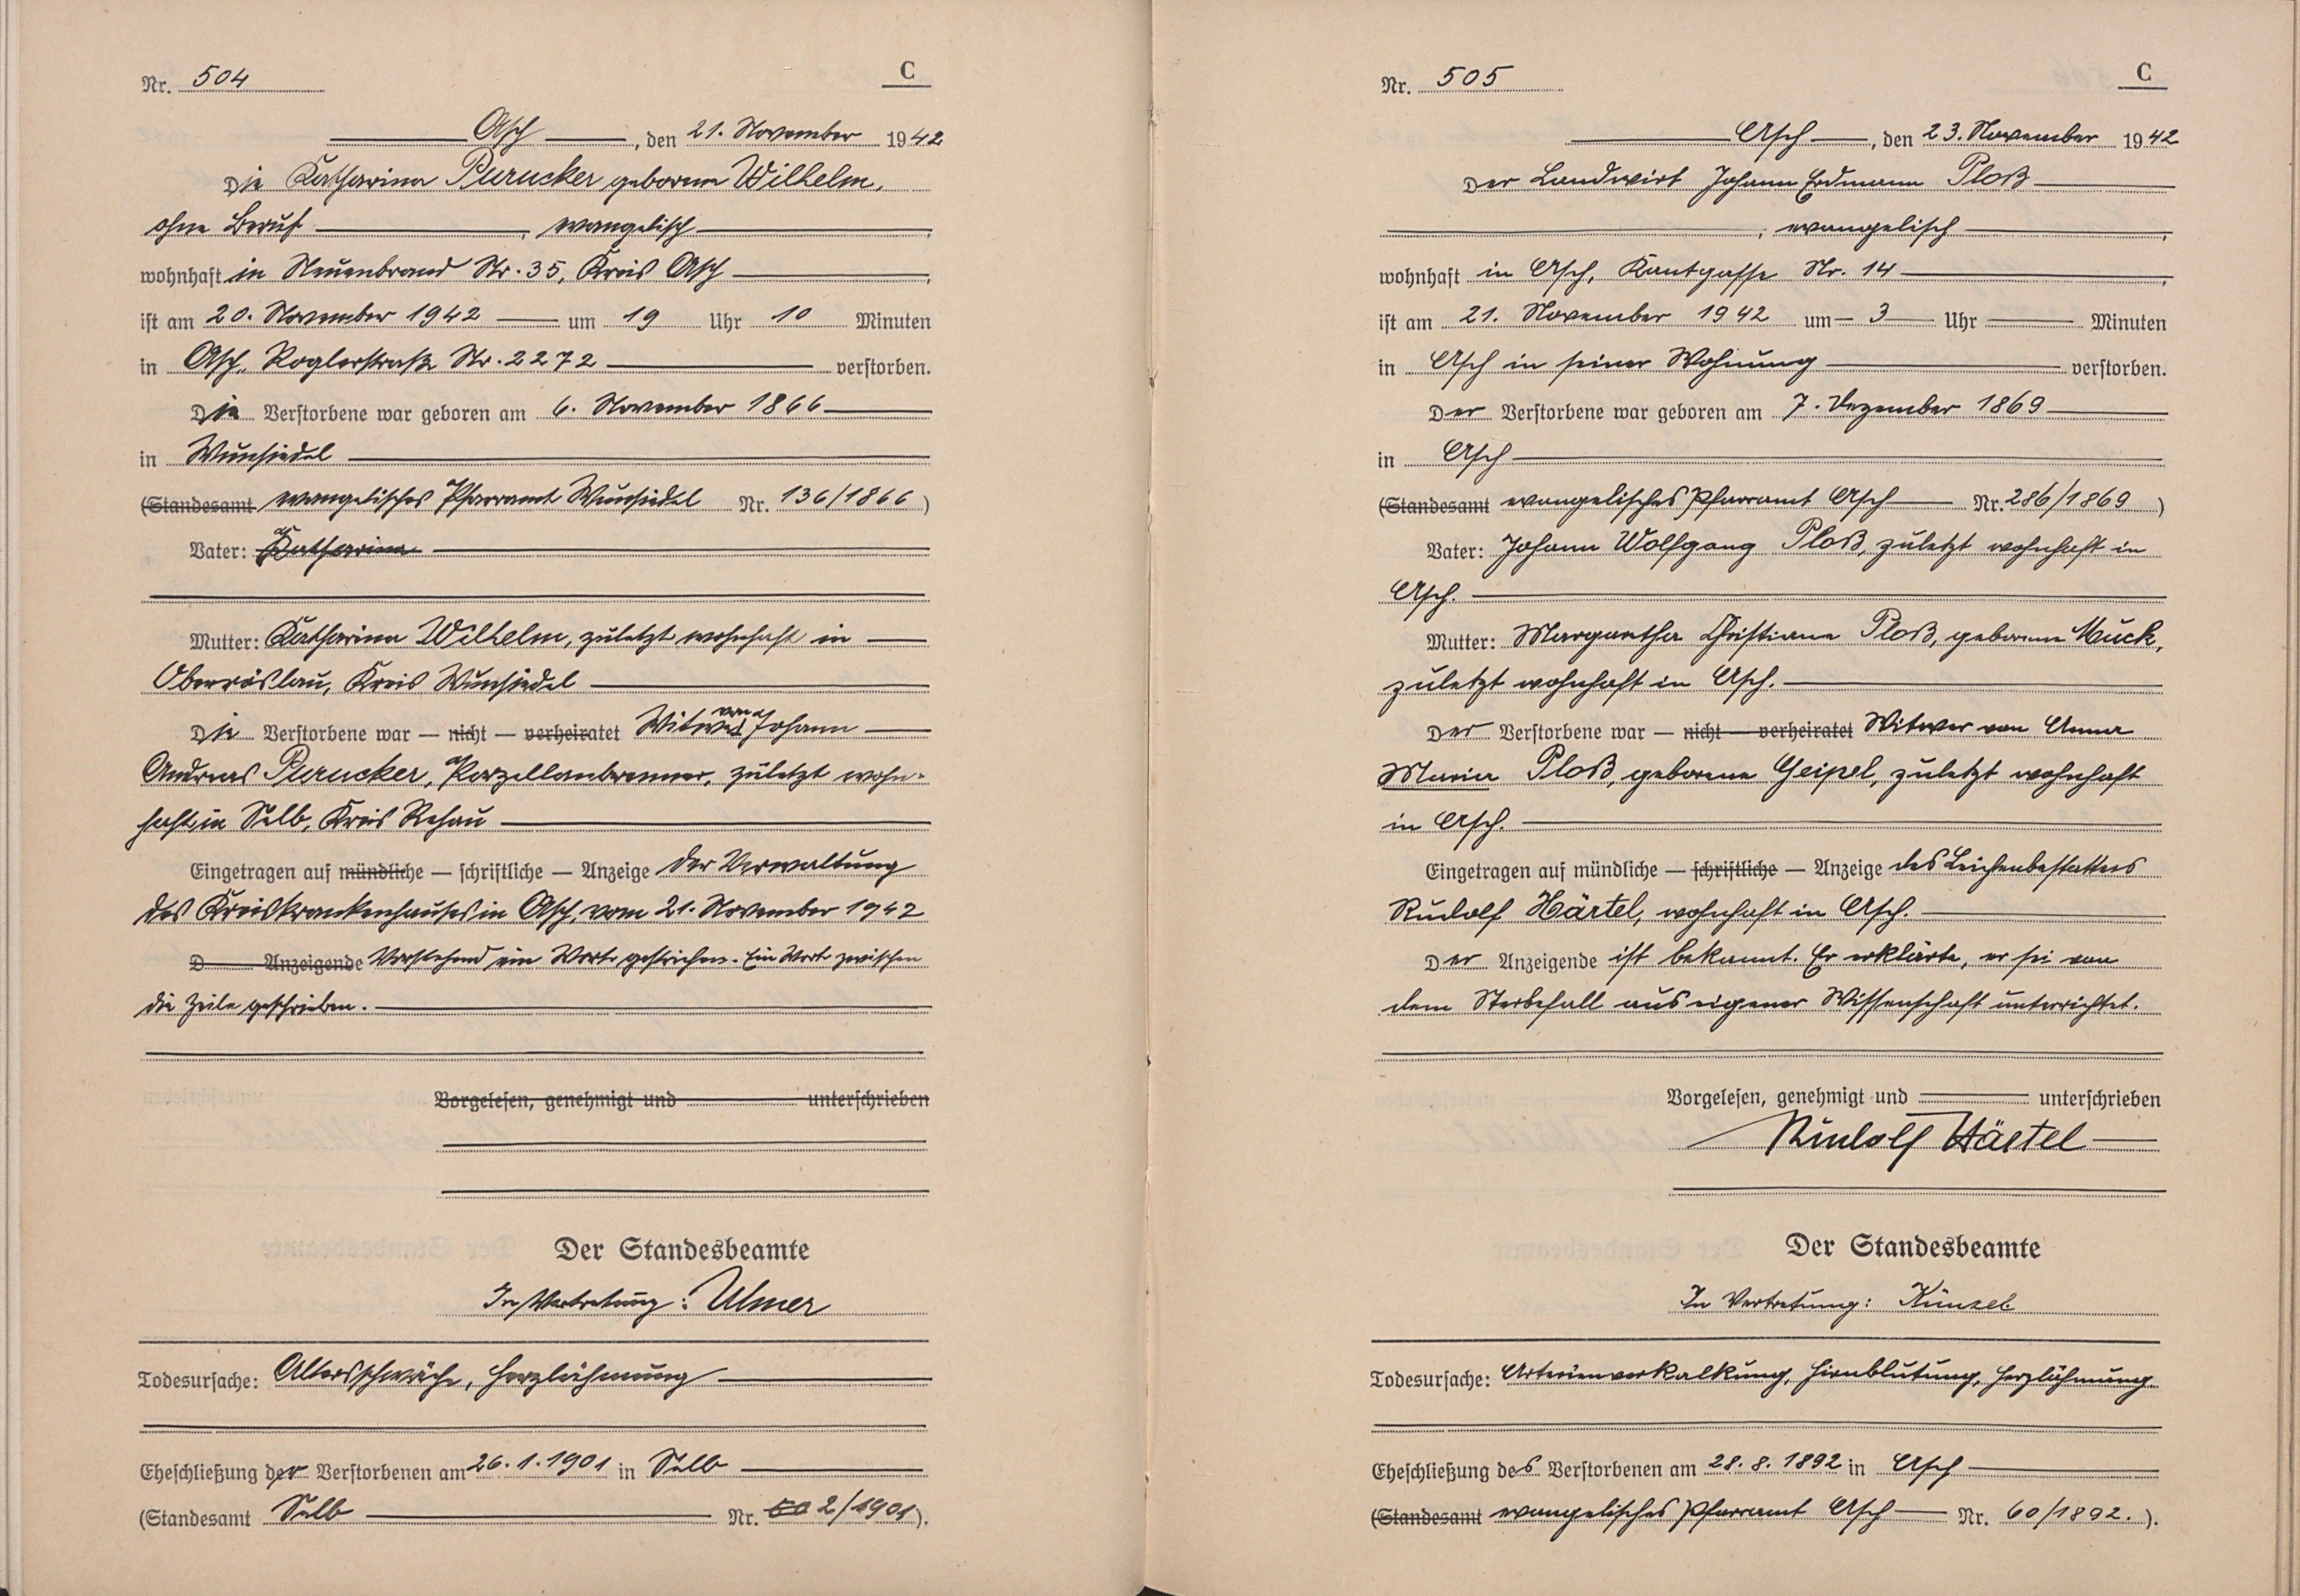 Nr. 504
C
Asch, den 21. November 1942
Die Katharina Purucker geborene Wilhelm,
ohne Beruf, evangelisch,
wohnhaft in Neuenbrand Nr. 35, Kreis Asch,
ist am 20. November 1942 um 19 Uhr 10 Minuten
in Asch, Roglerstraße Nr. 2272 verstorben.
Die Verstorbene war geboren am 6. November 1866
in Wunsiedel
(Standesamt evangelisches Pfarramt Wunsiedel Nr. 136/1866)
Vater: Katharina
Mutter: Katharina Wilhelm, zuletzt wohnhaft in
Oberröslau, Kreis Wunsiedel
Die Verstorbene war — nicht — verheiratet Witwe von Johann
Andreas Purucker, Porzellanbrenner, zuletzt wohn-
haft in Selb, Kreis Rehau
Eingetragen auf mündliche — schriftliche — Anzeige der Verwaltung
des Kreiskrankenhauses in Asch, vom 21. November 1942
D Anzeigende Vorstehend ein Wort gestrichen. Ein Wort zwischen
die Zeile geschrieben.
Vorgelesen, genehmigt und unterschrieben
Der Standesbeamte
In Vertretung: Ulmer
Todesursache: Altersschwäche, Herzlähmung
Eheschließung der Verstorbenen am 26.1.1901 in Selb
(Standesamt Selb Nr. 2/1901).
Nr. 505
C
Asch, den 23. November 1942
Der Landwirt Johann Erdmann Ploß
, evangelisch,
wohnhaft in Asch, Kantgasse Nr. 14,
ist am 21. November 1942 um 3 Uhr Minuten
in Asch in seiner Wohnung verstorben.
Der Verstorbene war geboren am 7. Dezember 1869
in Asch
(Standesamt evangelisches Pfarramt Asch Nr. 286/1869)
Vater: Johann Wolfgang Ploß, zuletzt wohnhaft in
Asch.
Mutter: Margaretha Christiane Ploß, geborene Muck,
zuletzt wohnhaft in Asch.
Der Verstorbene war — nicht — verheiratet Witwer von Anna
Maria Ploß, geborene Geipel, zuletzt wohnhaft
in Asch.
Eingetragen auf mündliche — schriftliche — Anzeige des Leichenbestatters
Rudolf Härtel, wohnhaft in Asch.
Der Anzeigende ist bekannt. Er erklärte, er sei von
dem Sterbefall aus eigener Wissenschaft unterrichtet.
Vorgelesen, genehmigt und unterschrieben
Rudolf Härtel
Der Standesbeamte
In Vertretung: Künzel
Todesursache: Arterienverkalkung, Hirnblutung, Herzlähmung.
Eheschließung des Verstorbenen am 28.8.1892 in Asch
(Standesamt evangelisches Pfarramt Asch Nr. 60/1892.).